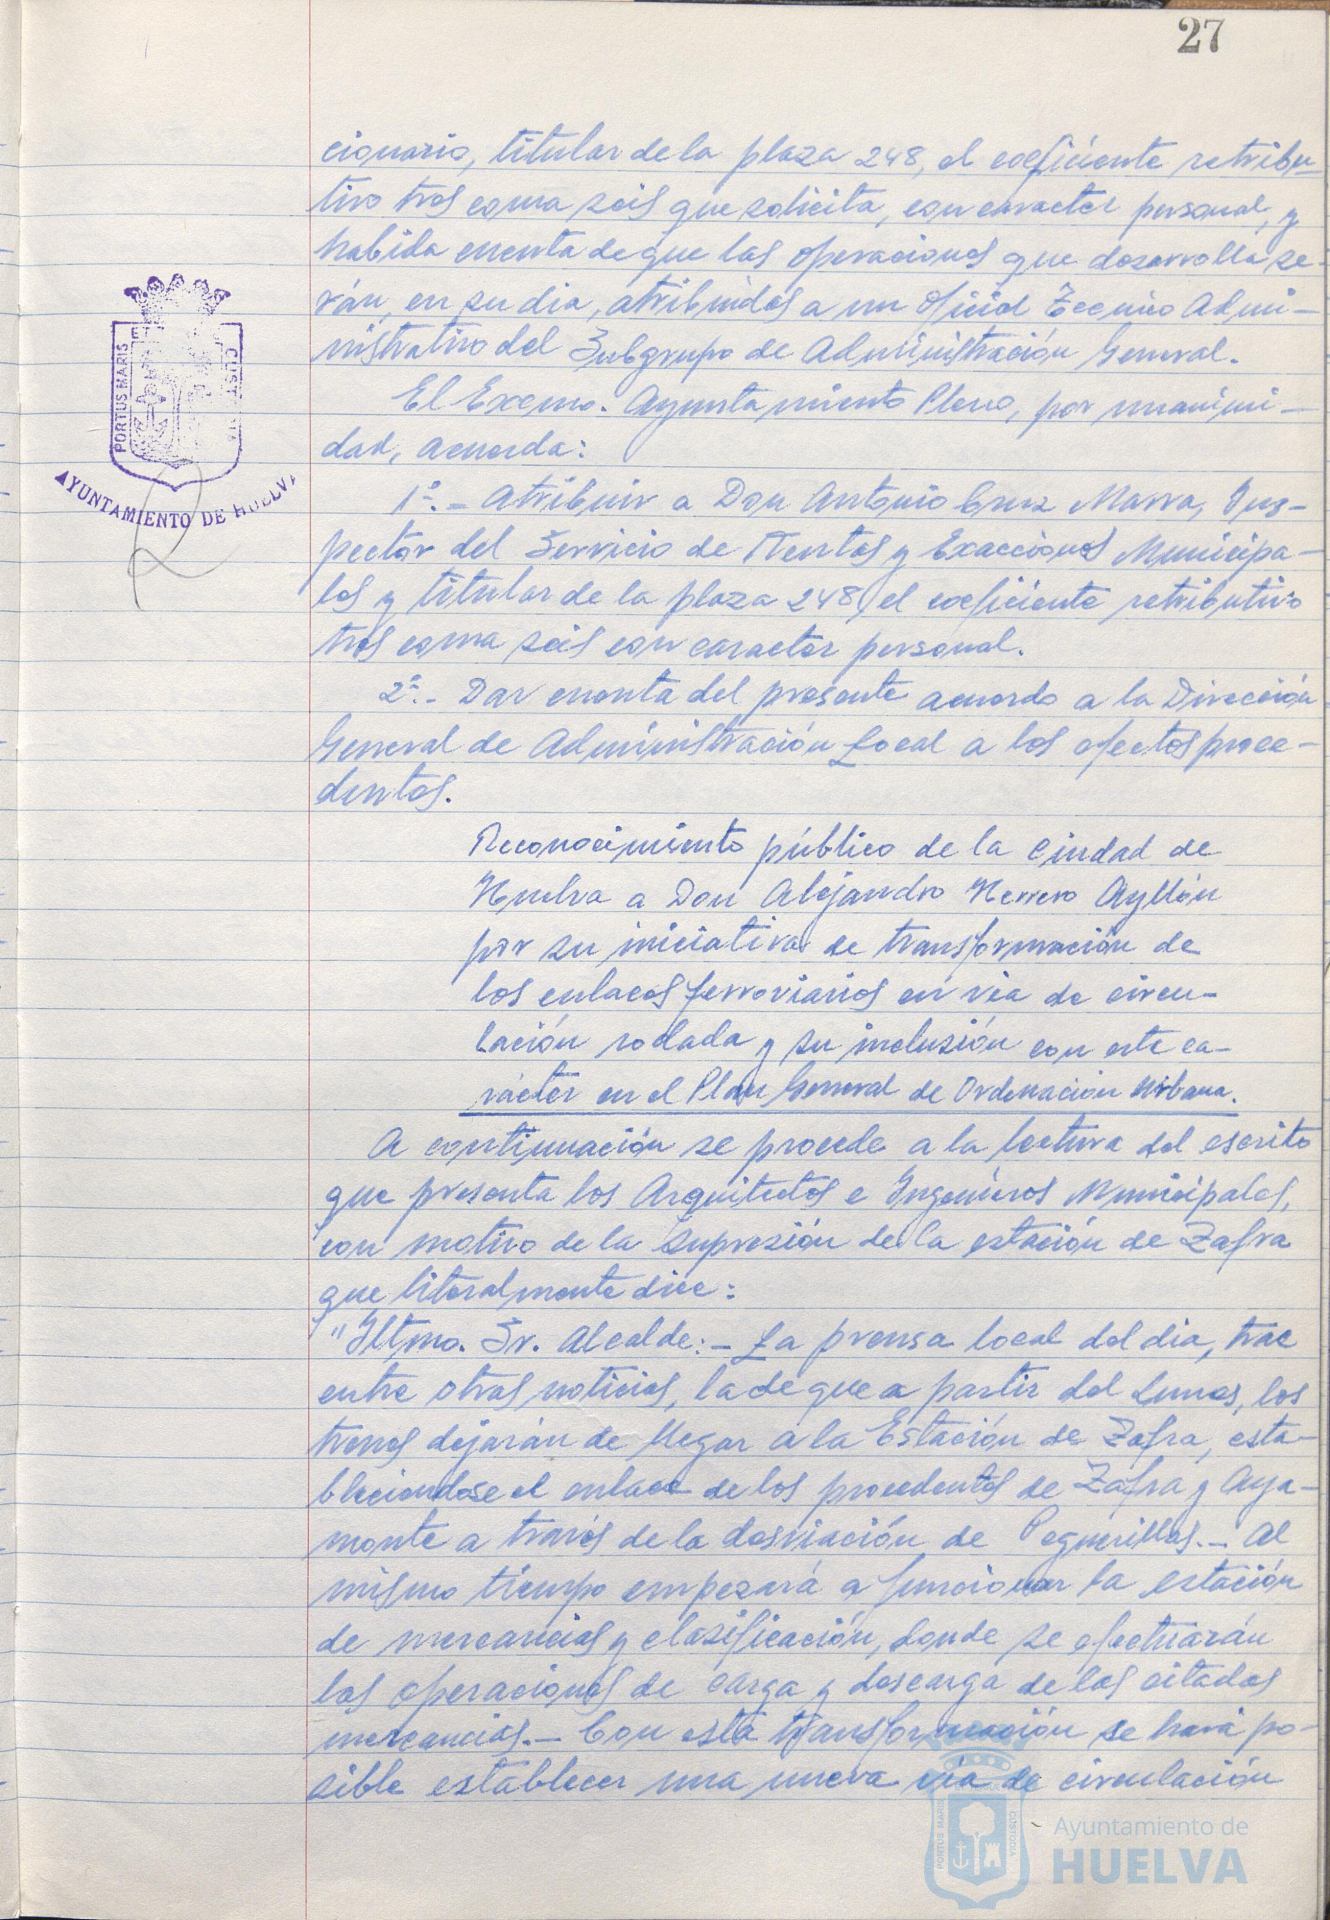 27
cionario, titular de la plaza 248, el coeficiente retribu-
tivo tres coma seis que solicita, con caracter personal, y
habida cuenta de que las operaciones que desarrolla se-
rán, en su dia, atribuidas a un Oficial Tecnico Admi-
nistrativo del Subgrupo de Administración General.
El Excmo. Ayuntamiento Pleno, por unanimi-
dad, acuerda:
1º.- Atribuir a Don Antonio Cruz Marra, Ins-
pector del Servicio de Rentas y Exacciones Municipa-
les y titular de la plaza 248, el coeficiente retributivo
tres coma seis con caracter personal.
2º.- Dar cuenta del presente acuerdo a la Dirección
General de Administración Local a los efectos proce-
dentes.
Reconocimiento público de la Ciudad de
Huelva a Don Alejandro Herrero Ayllón
por su iniciativa de transformación de
los enlaces ferroviarios en via de circu-
lación rodada y su inclusión con este ca-
rácter en el Plan General de Ordenación Urbana.
A continuación se procede a la lectura del escrito
que presenta los Arquitectos e Ingenieros Municipales,
con motivo de la supresión de la estación de Zafra
que literalmente dice:
"Iltmo. Sr. Alcalde:- La prensa local del dia, trae
entre otras noticias, la de que a partir del Lunes, los
trenes dejarán de llegar a la Estación de Zafra, esta-
bleciendose el enlace de los procedentes de Zafra y Aya-
monte a través de la desviación de Peguerillas.- Al
mismo tiempo empezará a funcionar la estación
de mercancias y clasificación, donde se efectuarán
las operaciones de carga y descarga de las citadas
mercancias.- Con esta transformación se hará po-
sible establecer una nueva via de circulación
PORTUS MARIS ET CUSTODIA
AYUNTAMIENTO DE HUELVA
PORTUS MARIS CUSTODIA
Ayuntamiento de
HUELVA